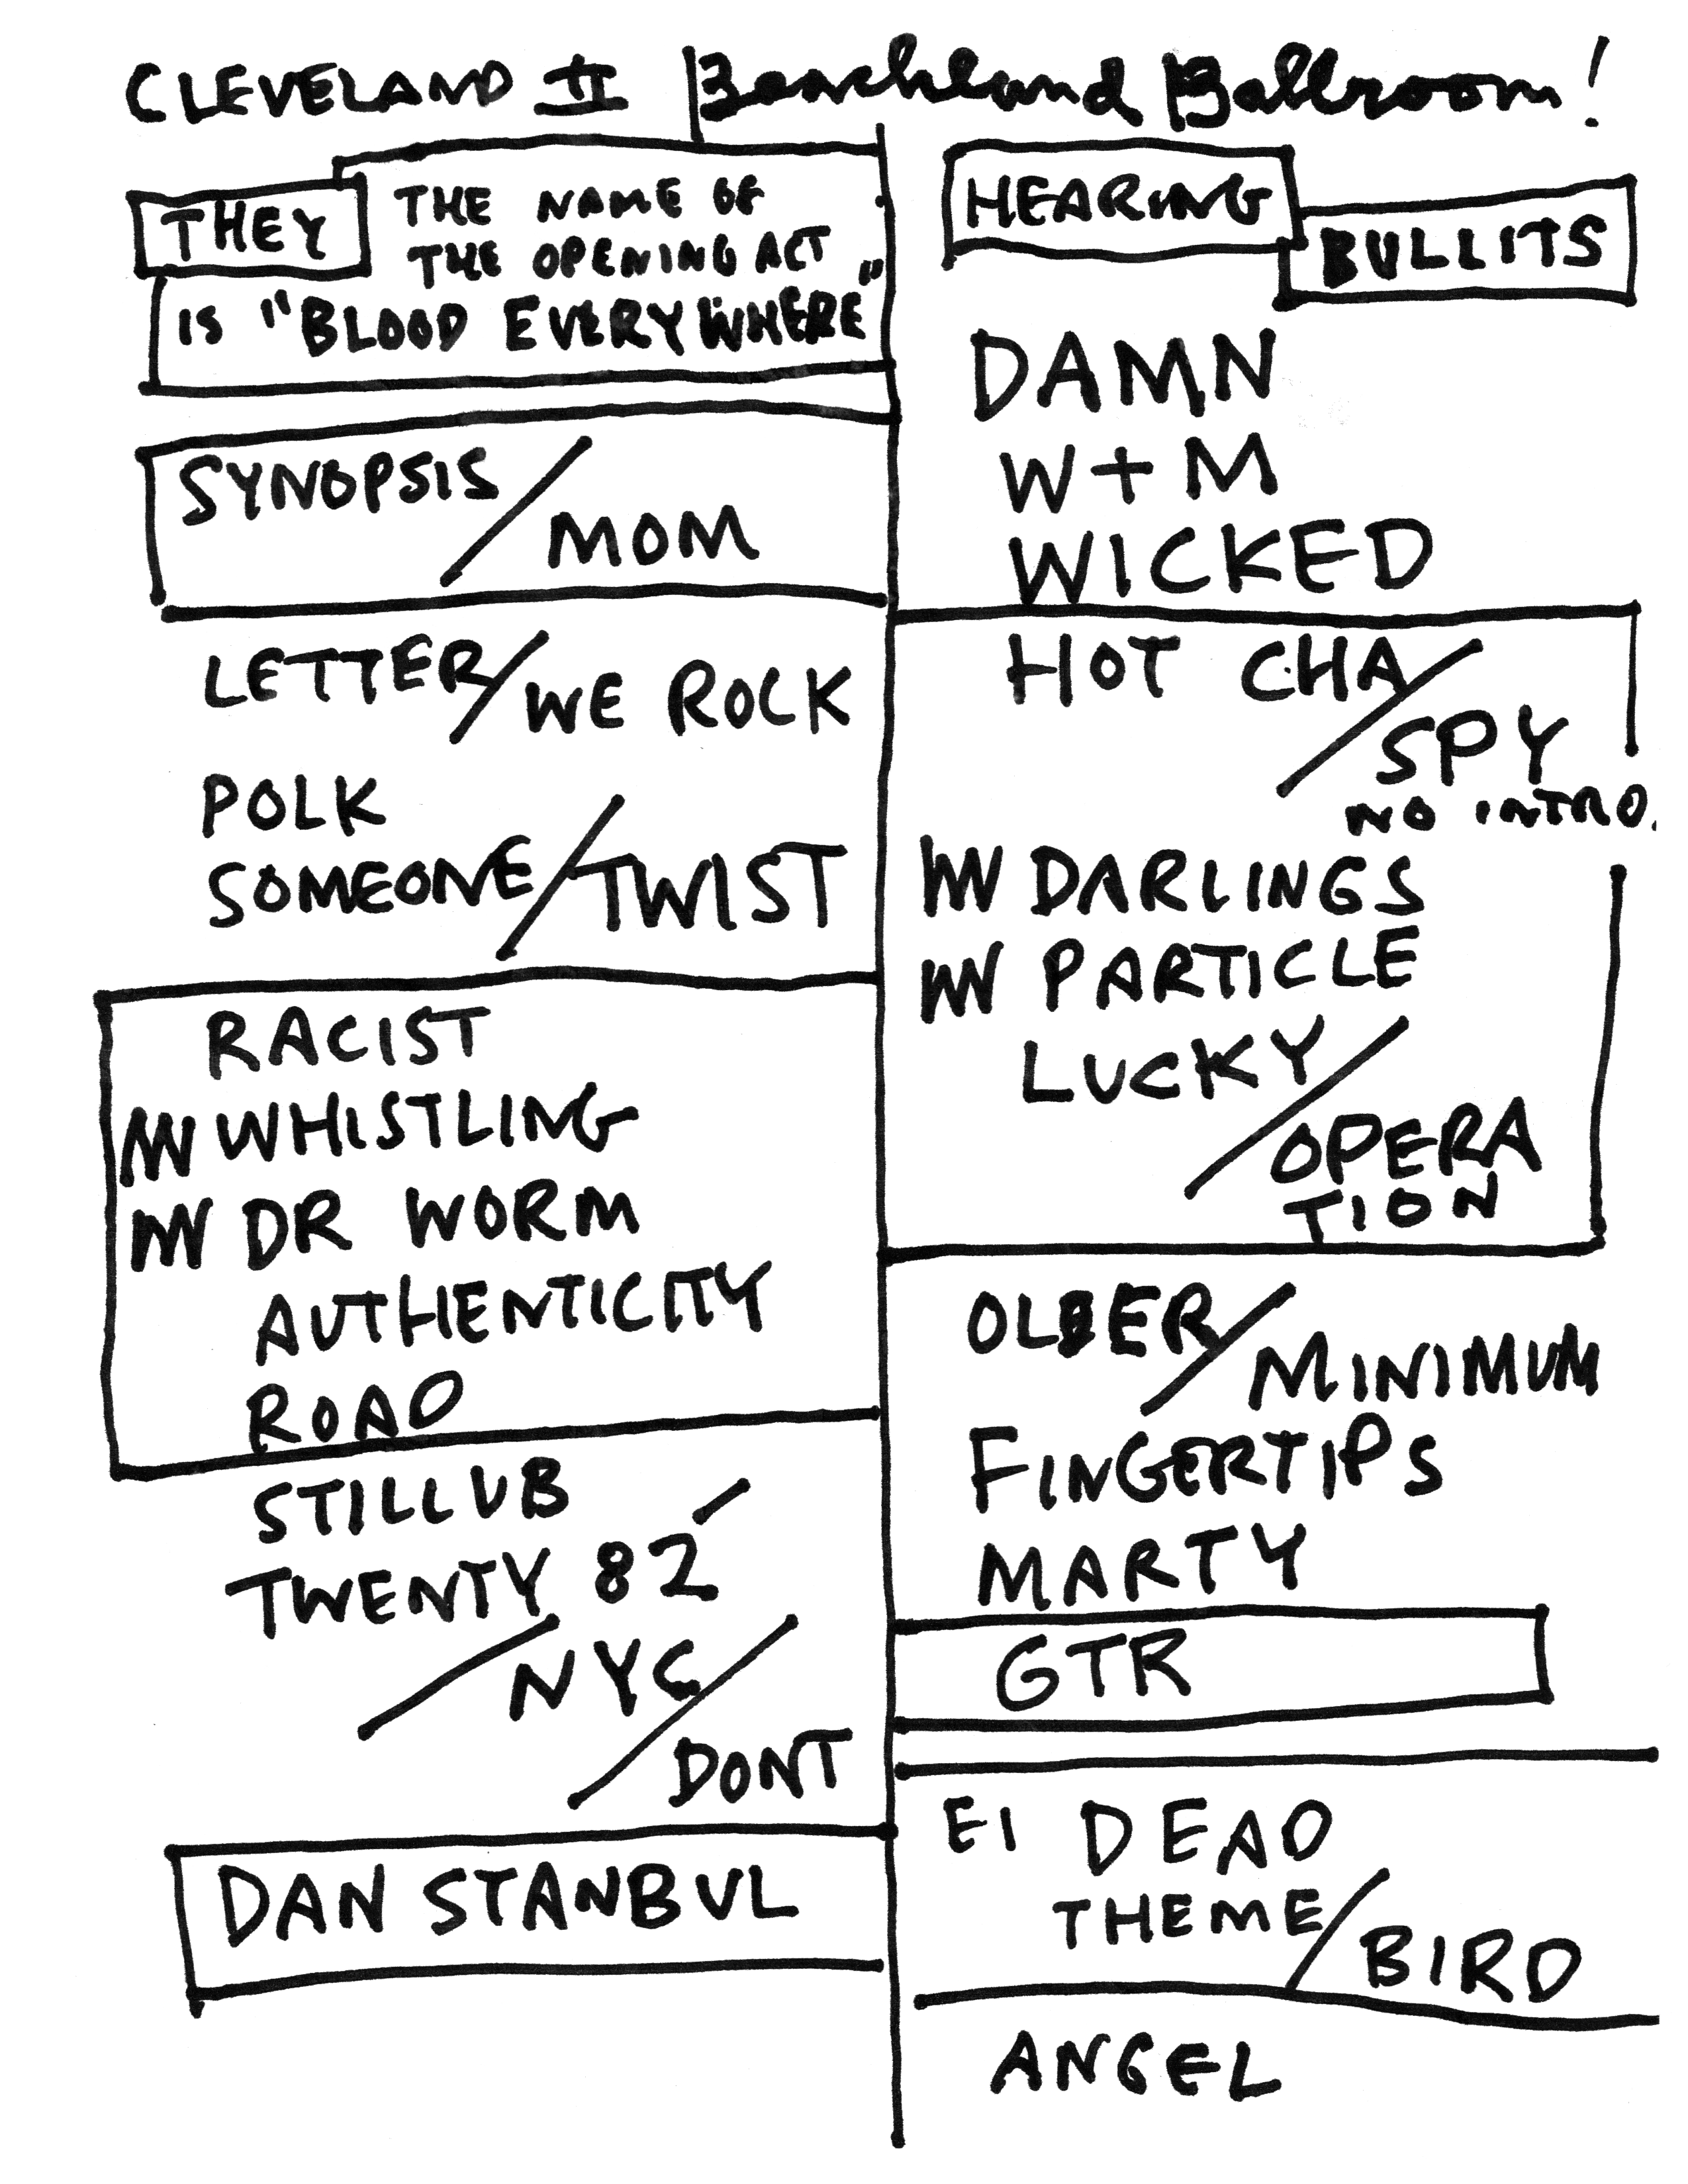 CLEVELAND II Beachland Ballroom!
THEY
THE NAME OF
THE OPENING ACT
IS "BLOOD EVERYWHERE"
SYNOPSIS/
MOM
LETTER/WE ROCK
POLK
SOMEONE/TWIST
RACIST
WHISTLING
DR WORM
AUTHENTICITY
ROAD
STILLUB
TWENTY 82/
/NYC/
DONT
DAN STANBUL
HEARING
BULLITS
DAMN
W+M
WICKED
HOT CHA/
SPY
NO INTRO.
DARLINGS
PARTICLE
LUCKY/
OPERA
TION
OLDER/MINIMUM
FINGERTIPS
MARTY
GTR
E1 DEAD
THEME/BIRD
ANGEL